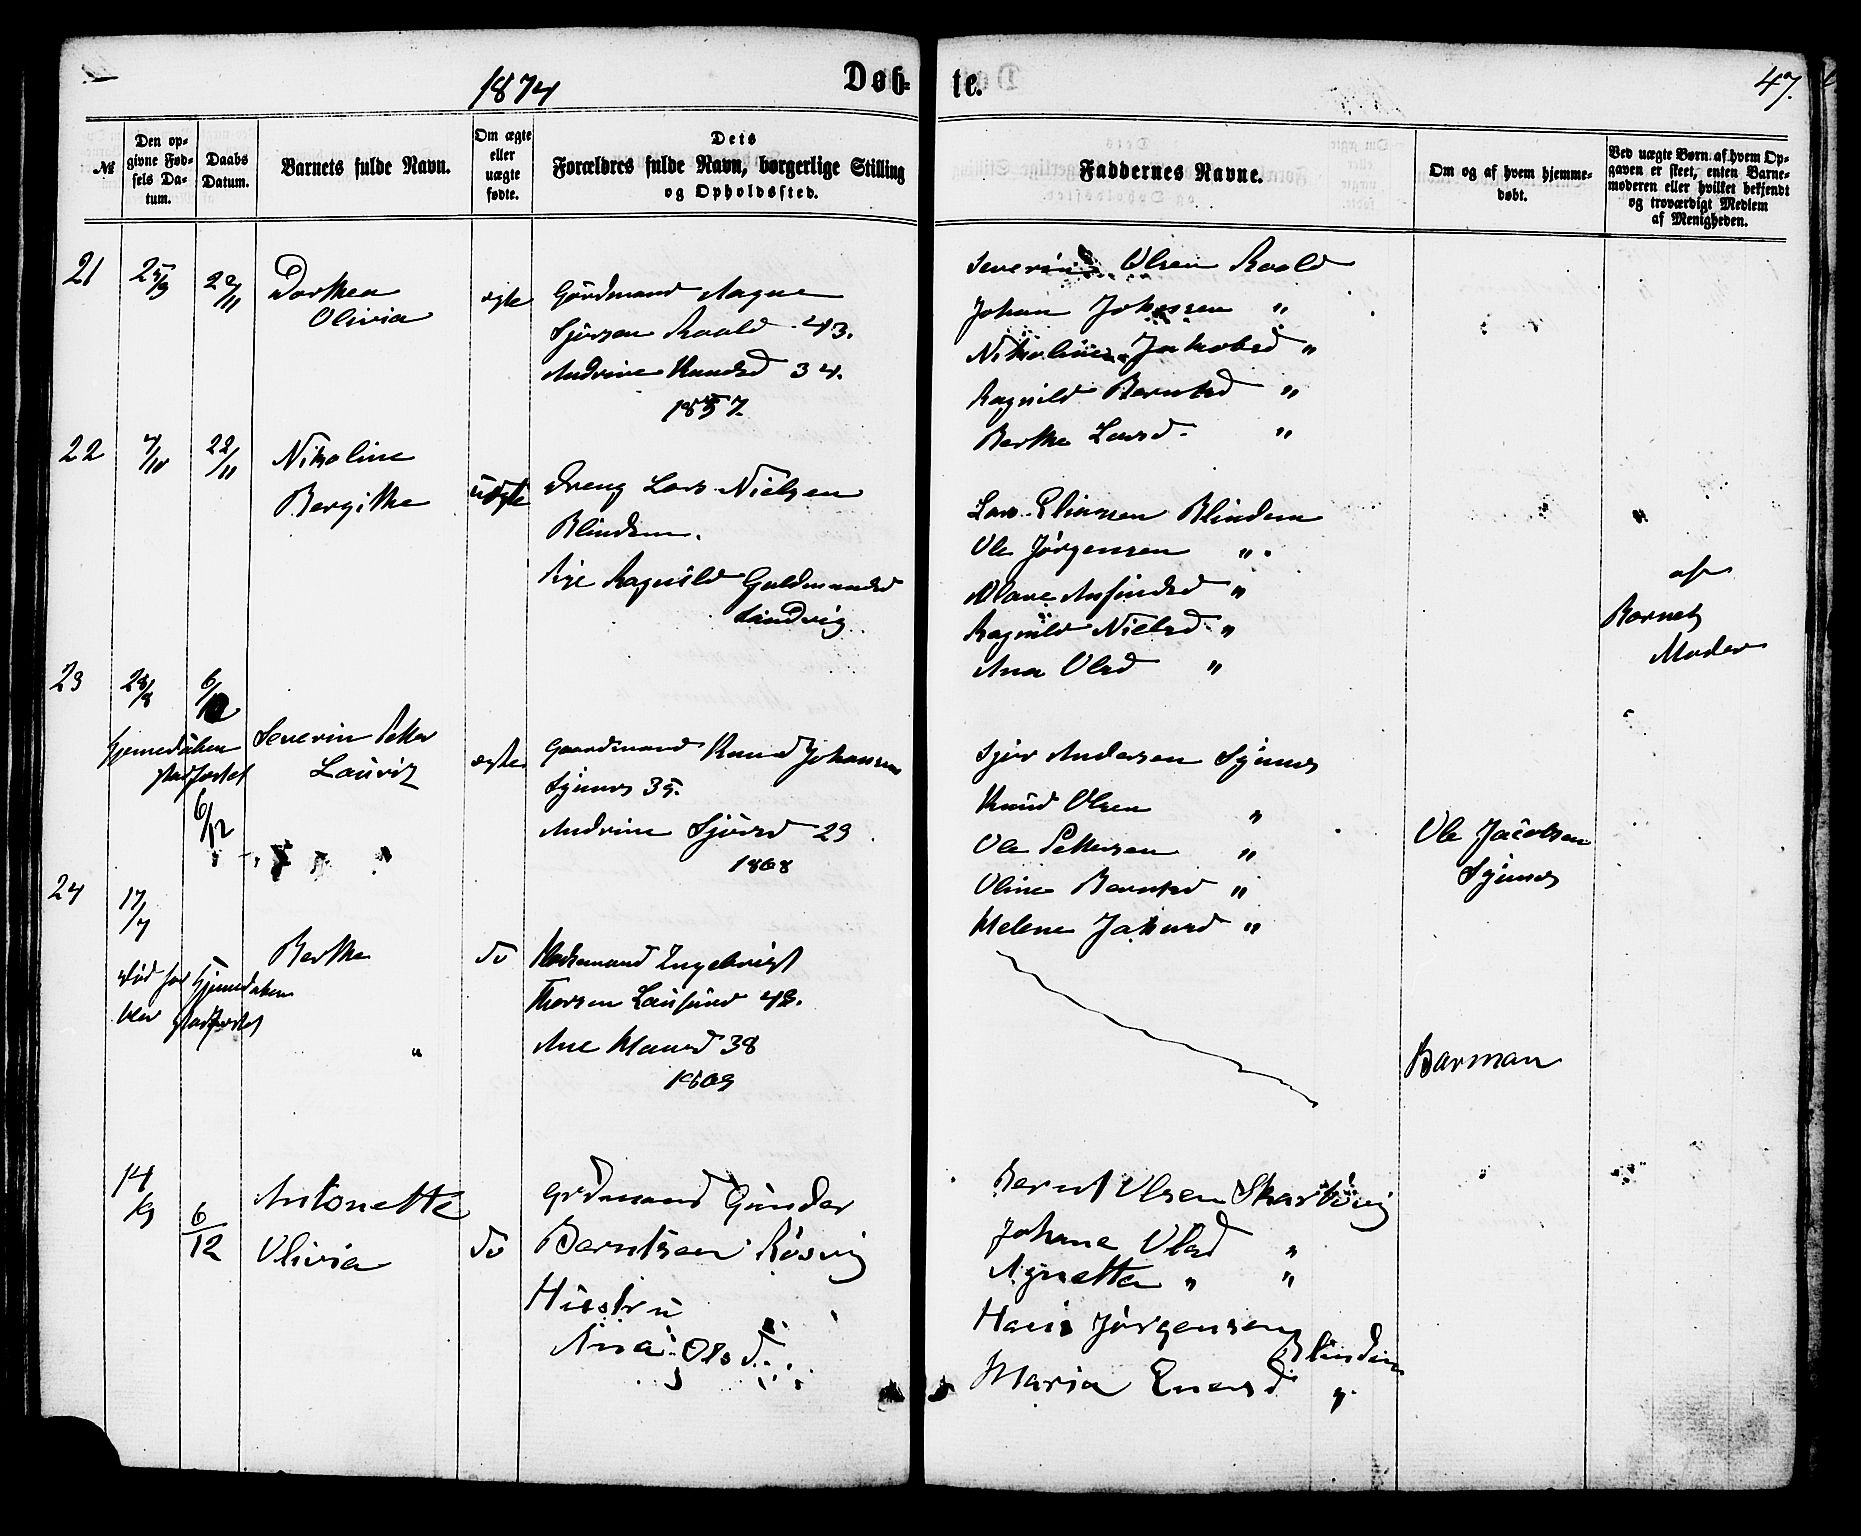 1874
Døb-
te.
47.
№
Den op-
givne Fød-
sels Da-
tum.
Daabs
Datum.
Barnets fulde Navn.
Om ægte
eller
uægte
fødte.
Dets
Forældres fulde Navn, borgerlige Stilling
og Opholdssted.
Faddernes Navne.
Om og af hvem hjemme-
døbt.
Ved uægte Børn af hvem Op-
gaven er skeet, enten Barne-
moderen eller hvilket bekjendt
og troværdigt Medlem
af Menigheden.
21
25/9
22/11
Dorthea
Olivia
ægte
Gårdmand Aagne
Sjursen Roald 43.
Andrine Knudsd 34.
1857.
Severin Olsen Roald
Johan Johansen "
Nikoline Jakobsd "
Ragnild Berntsd "
Berthe Larsd. "
22
4/10
22/11
Nikoline
Bergithe
uægte
Dreng Lars Nielsen
Blindem.
Pige Ragnild Guldmandsd
Sandvig
Lars Eliassen Blindem
Ole Jørgensen "
Olave Anfindsd "
Ragnild Nielsd "
Ana Olsd "
"
af
Barnets
Moder
23
28/8
6/12
Hjemedåben
stadfæstet
6/12
Severin Peter
Lauritz
ægte
Gaardmand Knud Johansen
Synnes 35.
Andrine Sjursd 29
1868
Sjur Andersen Synnes
Knud Olsen "
Ole Pettersen "
Oline Berntsd "
Helene "
Ole Jacobsen
Synnes
24
17/7
Død før Hjemedaben
blev stadfæstet
Berthe
do
Huusmand Ingebrigt
Thorsen Lausund 42.
Ane Knusd 38
1869
"
Barman
14/9
6/12
Antonette
Olivia
do
Grdmand Gunder
Berntsen Røsvig
Hustru
Ana Olsd
Bernt Olsen Skarbøvig
Johane Olsd "
Agnette " "
Hans Jørgensen
Blindem
Maria Enersd "